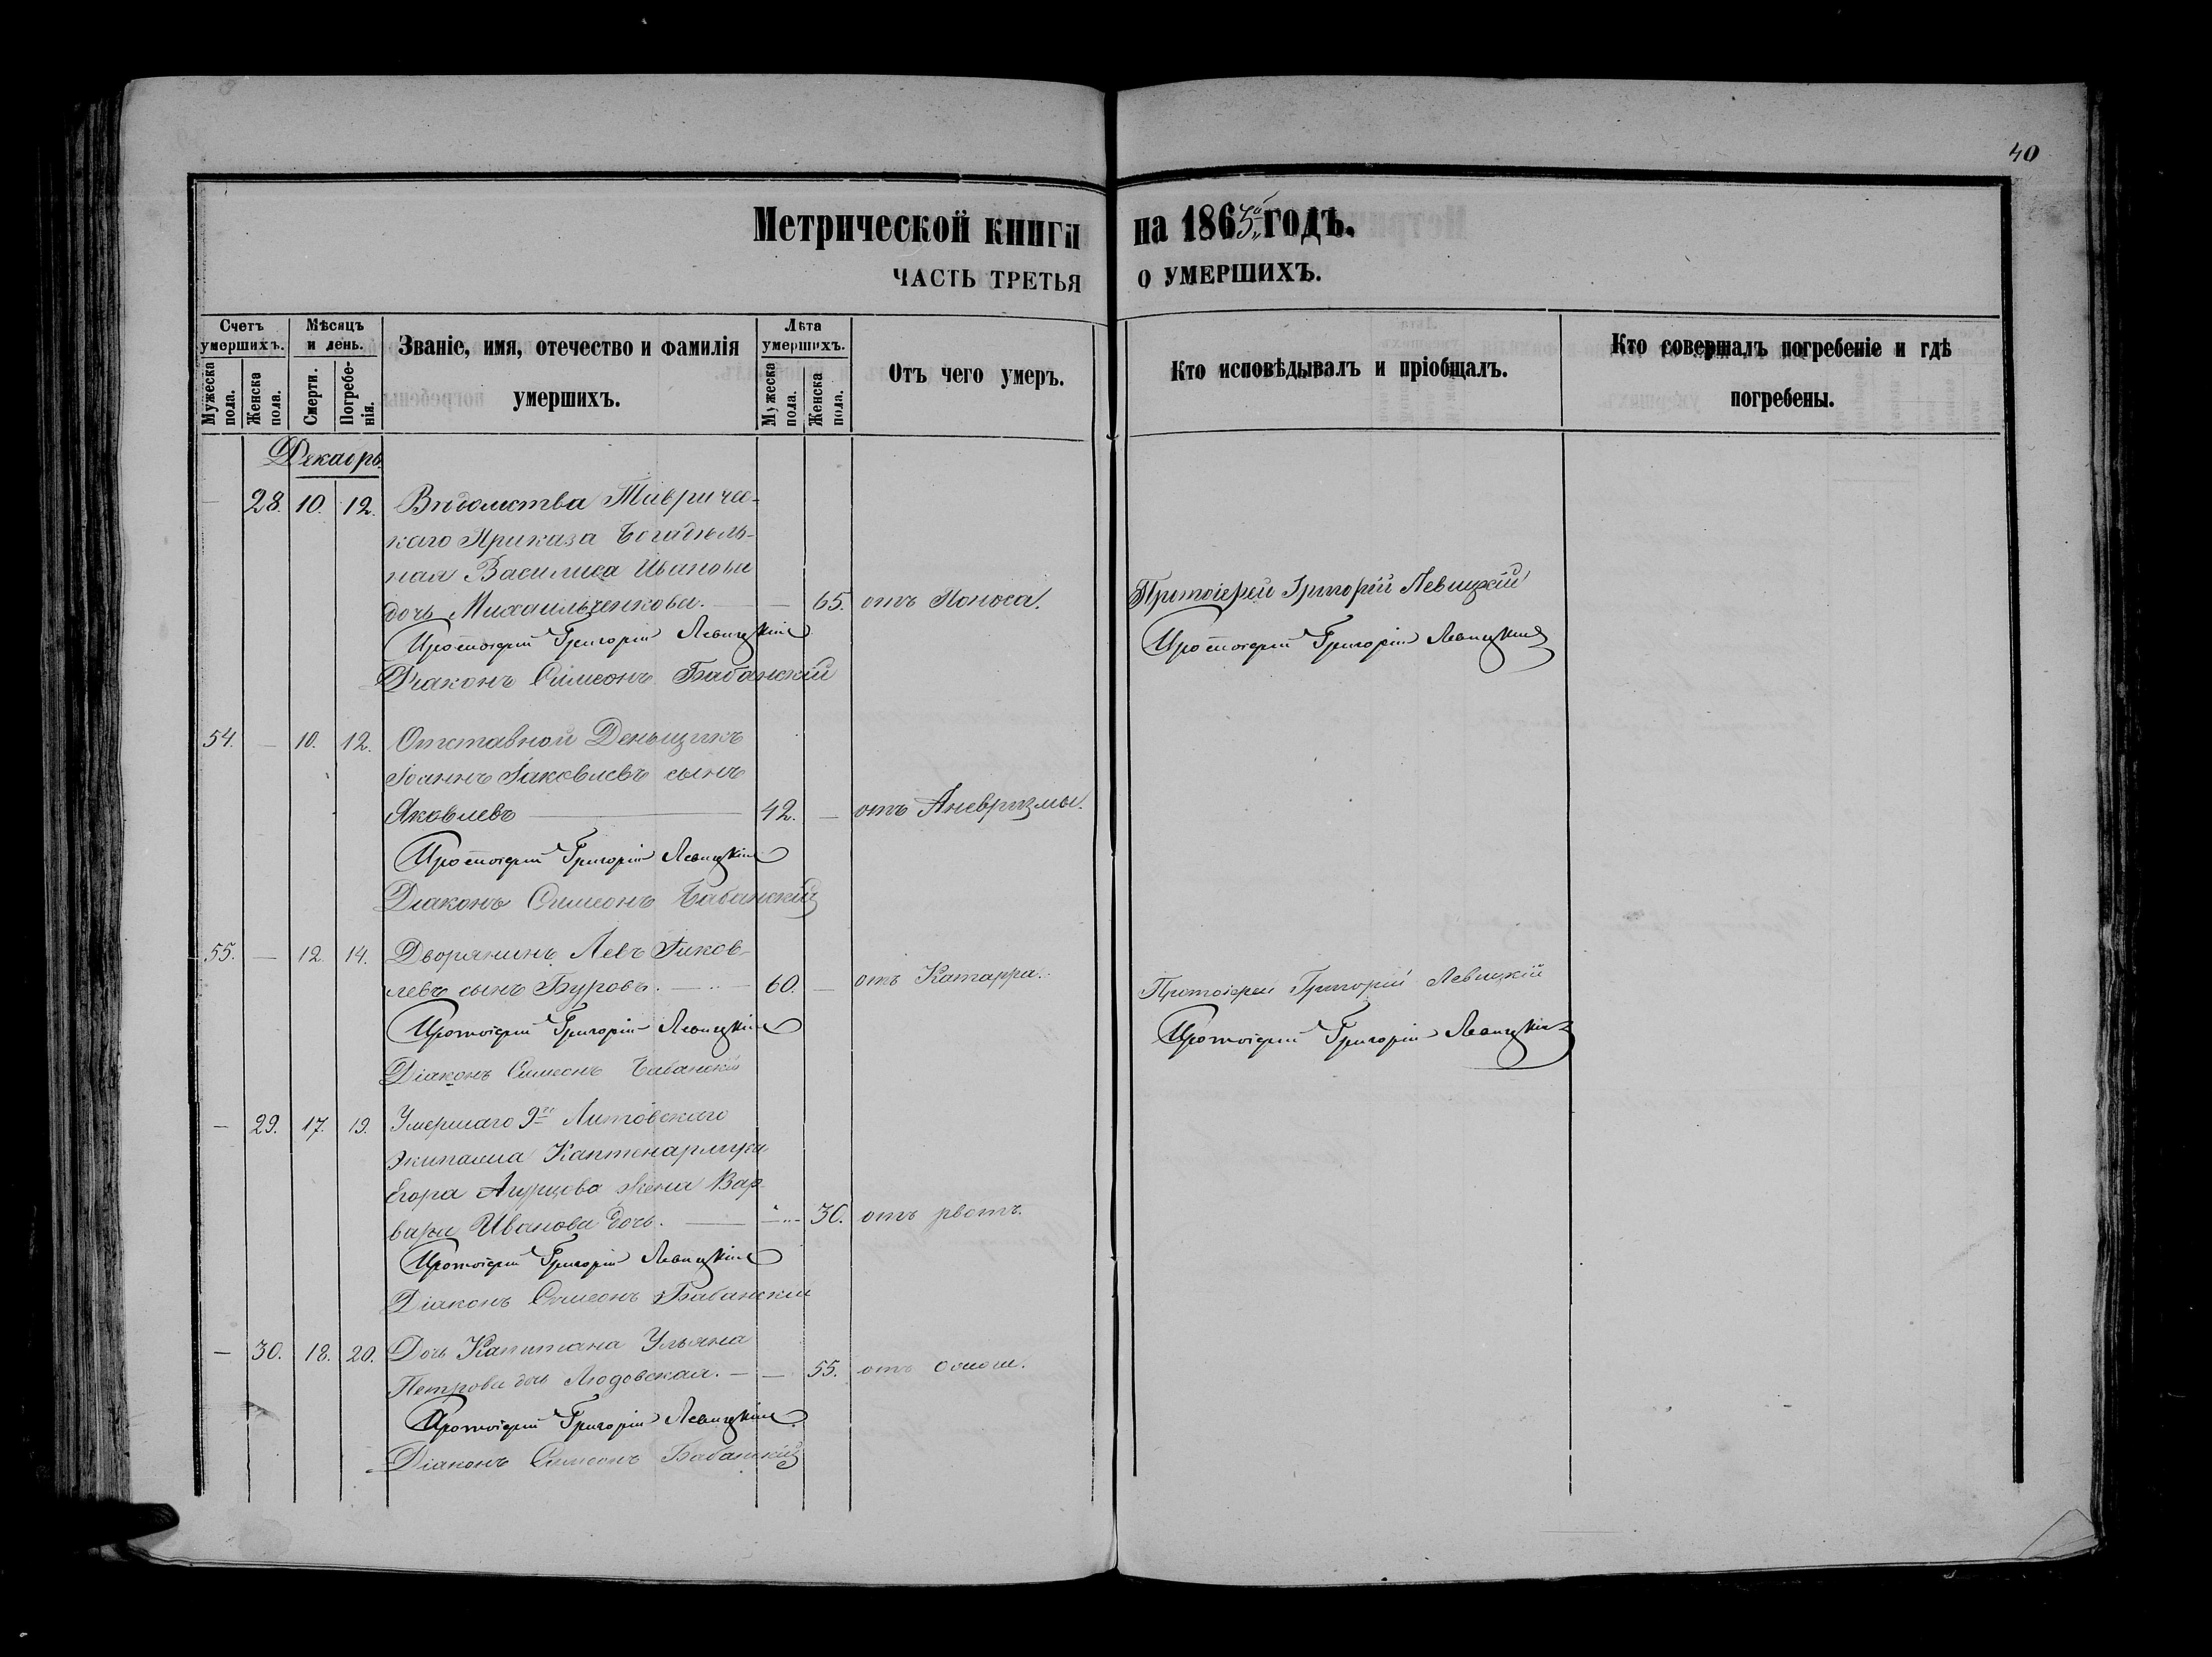 40
Метрической книги на 1865й годъ.
ЧАСТЬ ТРЕТЬЯ О УМЕРШИХЪ.
Счетъ умершихъ.
Мужеска пола.
Женска пола.
Мѣсяцъ и день.
Смерти.
Погребенія.
Званіе, имя, отечество и фамилія
умершихъ.
Лѣта умершихъ.
Мужеска пола.
Женска пола.
Отъ чего умеръ.
Кто исповѣдывалъ и пріобщалъ.
Кто совершалъ погребеніе и гдѣ
погребены.
Декабрь
— 28. 10. 12. Вѣдомства Тавричес-
каго Приказа Богадѣль-
ная Василиса Иванова
дочь Михайльченкова. — — 65. отъ Поноса. Протоіерей Григорій Левицкій
Протоіерей Григорій Левицкій Протоіерей Григорій Левицкій
Діаконъ Симеонъ Бабанскій
54. — 10. 12. Отставной Деньщикъ
Іоаннъ Іаковлевъ сынъ
Яковлевъ — 42. — отъ Аневризмы.
Протоіерей Григорій Левицкій
Діаконъ Симеонъ Бабанскій
55. — 12. 14. Дворянинъ Левъ Іаков-
левъ сынъ Буровъ. — 60. — отъ Катарра. Протоіерей Григорій Левицкій
Протоіерей Григорій Левицкій Протоіерей Григорій Левицкій
Діаконъ Симеонъ Бабанскій
— 29. 17. 19. Умершаго 9го Литовскаго
Экипажа Каптенармуса
Егора жена Вар-
вара Иванова дочь. — — 30. отъ рвотъ.
Протоіерей Григорій Левицкій
Діаконъ Симеонъ Бабанскій
— 30. 18. 20. Дочь Капитана Ульяна
Петрова дочь Людовская. — — 55. отъ
Протоіерей Григорій Левицкій
Діаконъ Симеонъ Бабанскій